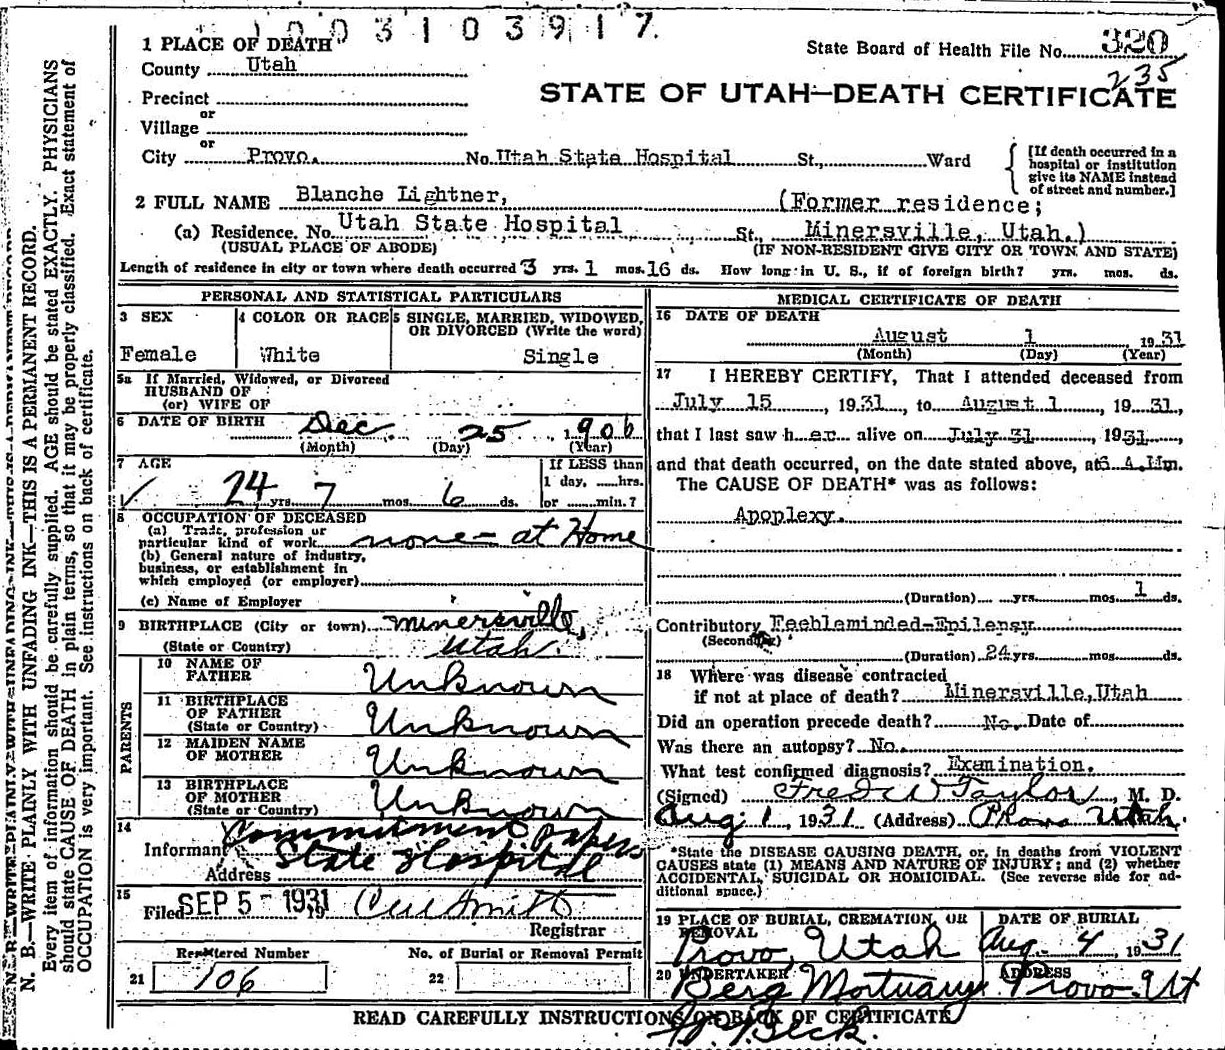 1003103917.
1 PLACE OF DEATH
State Board of Health File No. 320
County Utah
235
STATE OF UTAH—DEATH CERTIFICATE
Precinct
or
Village
or
City Provo. No. Utah State Hospital St., Ward
[If death occurred in a hospital or institution give its NAME instead of street and number.]
2 FULL NAME Blanche Lightner, (Former residence;
(a) Residence. No. Utah State Hospital St., Minersville, Utah.)
(USUAL PLACE OF ABODE) (IF NON-RESIDENT GIVE CITY OR TOWN AND STATE)
Length of residence in city or town where death occurred 3 yrs. 1 mos. 16 ds. How long in U. S., if of foreign birth? yrs. mos. ds.
PERSONAL AND STATISTICAL PARTICULARS
3 SEX 4 COLOR OR RACE 5 SINGLE, MARRIED, WIDOWED, OR DIVORCED (Write the word)
Female White Single
5a If Married, Widowed, or Divorced
HUSBAND OF
(or) WIFE OF
6 DATE OF BIRTH Dec. 25, 1906
(Month) (Day) (Year)
7 AGE If LESS than
1 day, hrs.
24 yrs. 7 mos. 6 ds. or min.?
8 OCCUPATION OF DECEASED
(a) Trade, profession or
particular kind of work none - at Home
(b) General nature of industry,
business, or establishment in
which employed (or employer)
(c) Name of Employer
9 BIRTHPLACE (City or town) Minersville,
(State or Country) Utah.
PARENTS
10 NAME OF
FATHER Unknown
11 BIRTHPLACE
OF FATHER Unknown
(State or Country)
12 MAIDEN NAME
OF MOTHER Unknown
13 BIRTHPLACE
OF MOTHER Unknown
(State or Country)
14
Informant Commitment papers
Address State Hospital
15
Filed SEP 5 - 1931 19
Registrar
Registered Number No. of Burial or Removal Permit
21 106 22
MEDICAL CERTIFICATE OF DEATH
16 DATE OF DEATH
August 1 1931
(Month) (Day) (Year)
17 I HEREBY CERTIFY, That I attended deceased from
July 15, 1931, to August 1, 1931,
that I last saw her alive on July 31, 1931,
and that death occurred, on the date stated above, at 6 A.Mm.
The CAUSE OF DEATH* was as follows:
Apoplexy.
(Duration) yrs. mos. 1 ds.
Contributory Feebleminded-Epilepsy
(Secondary)
(Duration) 24 yrs. mos. ds.
18 Where was disease contracted
if not at place of death? Minersville, Utah
Did an operation precede death? No. Date of
Was there an autopsy? No.
What test confirmed diagnosis? Examination.
(Signed) Fred W Taylor, M. D.
Aug 1, 1931 (Address) Provo Utah.
*State the DISEASE CAUSING DEATH, or, in deaths from VIOLENT
CAUSES state (1) MEANS AND NATURE OF INJURY; and (2) whether
ACCIDENTAL, SUICIDAL OR HOMICIDAL. (See reverse side for ad-
ditional space.)
19 PLACE OF BURIAL, CREMATION, OR REMOVAL DATE OF BURIAL
Provo, Utah Aug. 4, 1931
20 UNDERTAKER ADDRESS
Berg Mortuary Provo-Ut
READ CAREFULLY INSTRUCTIONS ON BACK OF CERTIFICATE
N. B.—WRITE PLAINLY WITH UNFADING INK—THIS IS A PERMANENT RECORD.
Every item of information should be carefully supplied. AGE should be stated EXACTLY. PHYSICIANS
should state CAUSE OF DEATH in plain terms, so that it may be properly classified. Exact statement of
OCCUPATION is very important. See instructions on back of certificate.